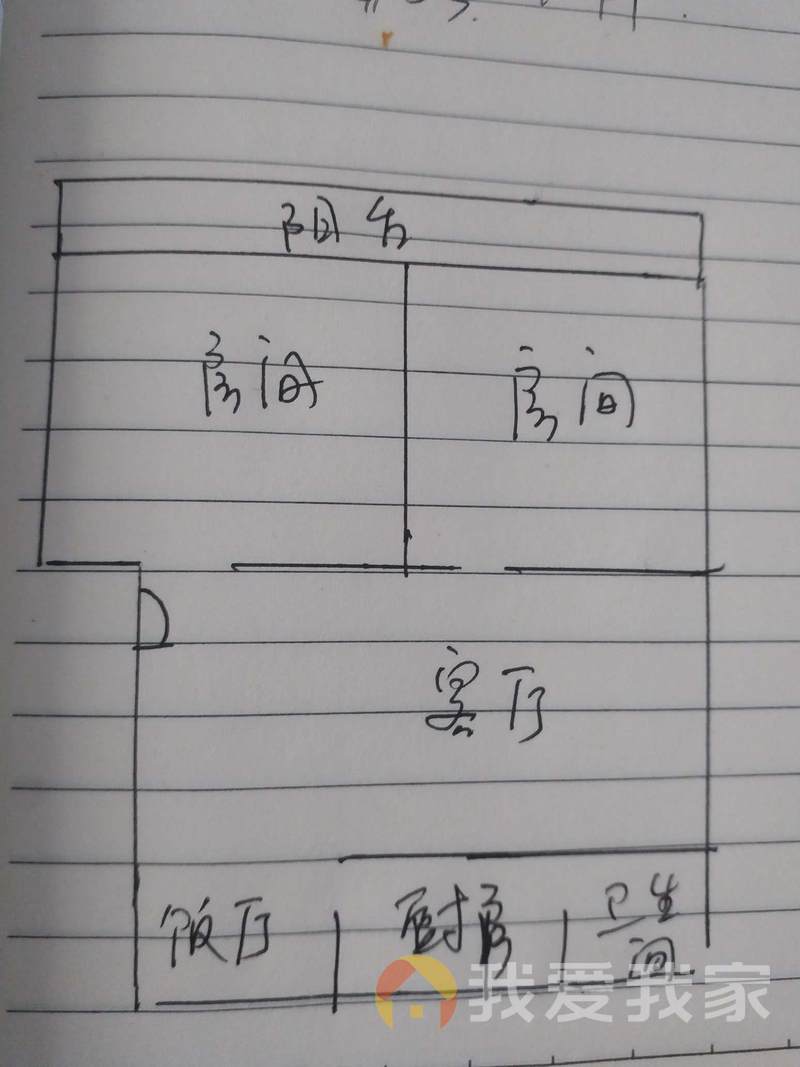 阳台
房间
房间
客厅
饭厅
厨房
卫生
间
我爱我家